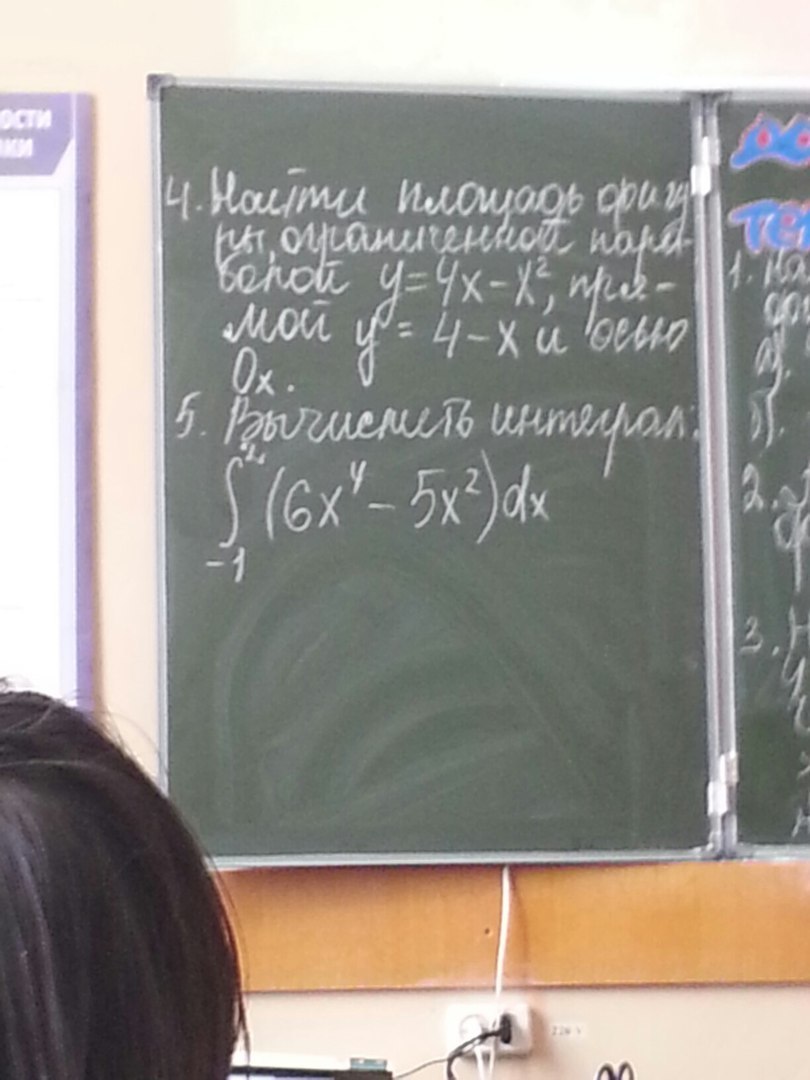 ОСТИ
КИ
4. Найти площадь фигу
ры, ограниченной пара-
болой y=4x-x², пря-
мой y = 4-x и осью
Ox.
5. Вычислить интеграл:
∫ (6x⁴ - 5x²)dx
-1
1.
а).
б).
2.
3.
220 V